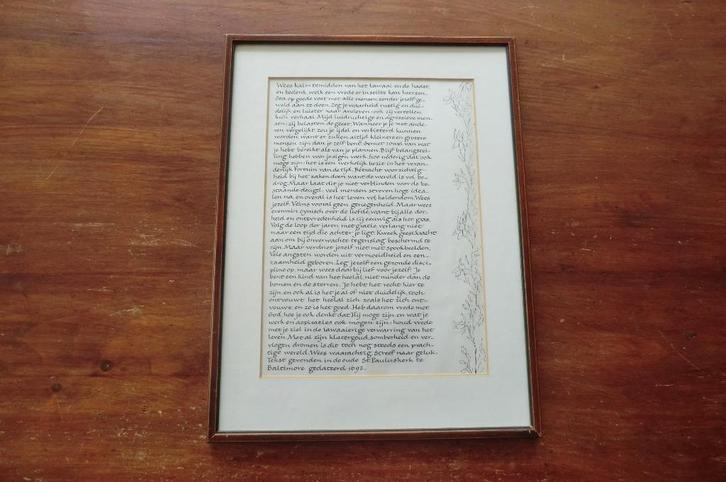 Wees kalm temidden van het lawaai en de haast
en bedenk welk een vrede er in stilte kan heersen.
Sta op goede voet met alle mensen zonder jezelf ge-
weld aan te doen. Zeg je waarheid rustig en dui-
delijk en luister naar anderen ook zij vertellen
hun verhaal. Mijd luidruchtige en agressieve men-
sen; zij belasten de geest. Wanneer je je met ande-
ren vergelijkt zou je ijdel en verbitterd kunnen
worden want er zullen altijd kleinere en grotere
mensen zijn dan je zelf bent. Geniet zowel van wat
je hebt bereikt als van je plannen. Blijf belangstel-
ling hebben voor je eigen werk, hoe nederig dat ook
moge zijn: het is een werkelijk bezit in het veran-
derlijk fortuin van de tijd. Betracht voorzichtig-
heid bij het zaken doen want de wereld is vol be-
drog. Maar laat die je niet verblinden voor de be-
staande deugd: veel mensen streven hoge idea-
len na, en overal is het leven vol heldendom. Wees
jezelf. Veins vooral geen genegenheid. Maar wees
evenmin cynisch over de liefde, want bij alle dor-
heid en ontevredenheid is zij eeuwig als het gras.
Volg de loop der jaren met gratie verlang niet
naar een tijd die achter je ligt. Kweek geestkracht
aan om bij onverwachte tegenslag beschermd te
zijn. Maar verdriet jezelf niet met spookbeelden.
Vele angsten worden uit vermoeidheid en een-
zaamheid geboren. Leg jezelf een gezonde disci-
pline op, maar wees daarbij lief voor jezelf. Je
bent een kind van het heelal, niet minder dan de
bomen en de sterren. Je hebt het recht hier te
zijn en ook al is het je al of niet duidelijk, toch
ontvouwt het heelal zich zoals het zich ont-
vouwt en zo is het goed. Heb daarom vrede met
God, hoe je ook denkt dat Hij moge zijn en wat je
werk en aspiraties ook mogen zijn: houd vrede
met je ziel in de lawaaierige verwarring van het
leven. Met al zijn klatergoud, somberheid en ver-
vlogen dromen is dit toch nog steeds een prach-
tige wereld. Wees waarachtig. Streef naar geluk.
Tekst gevonden in de oude St. Pauluskerk te
Baltimore gedateerd 1692.